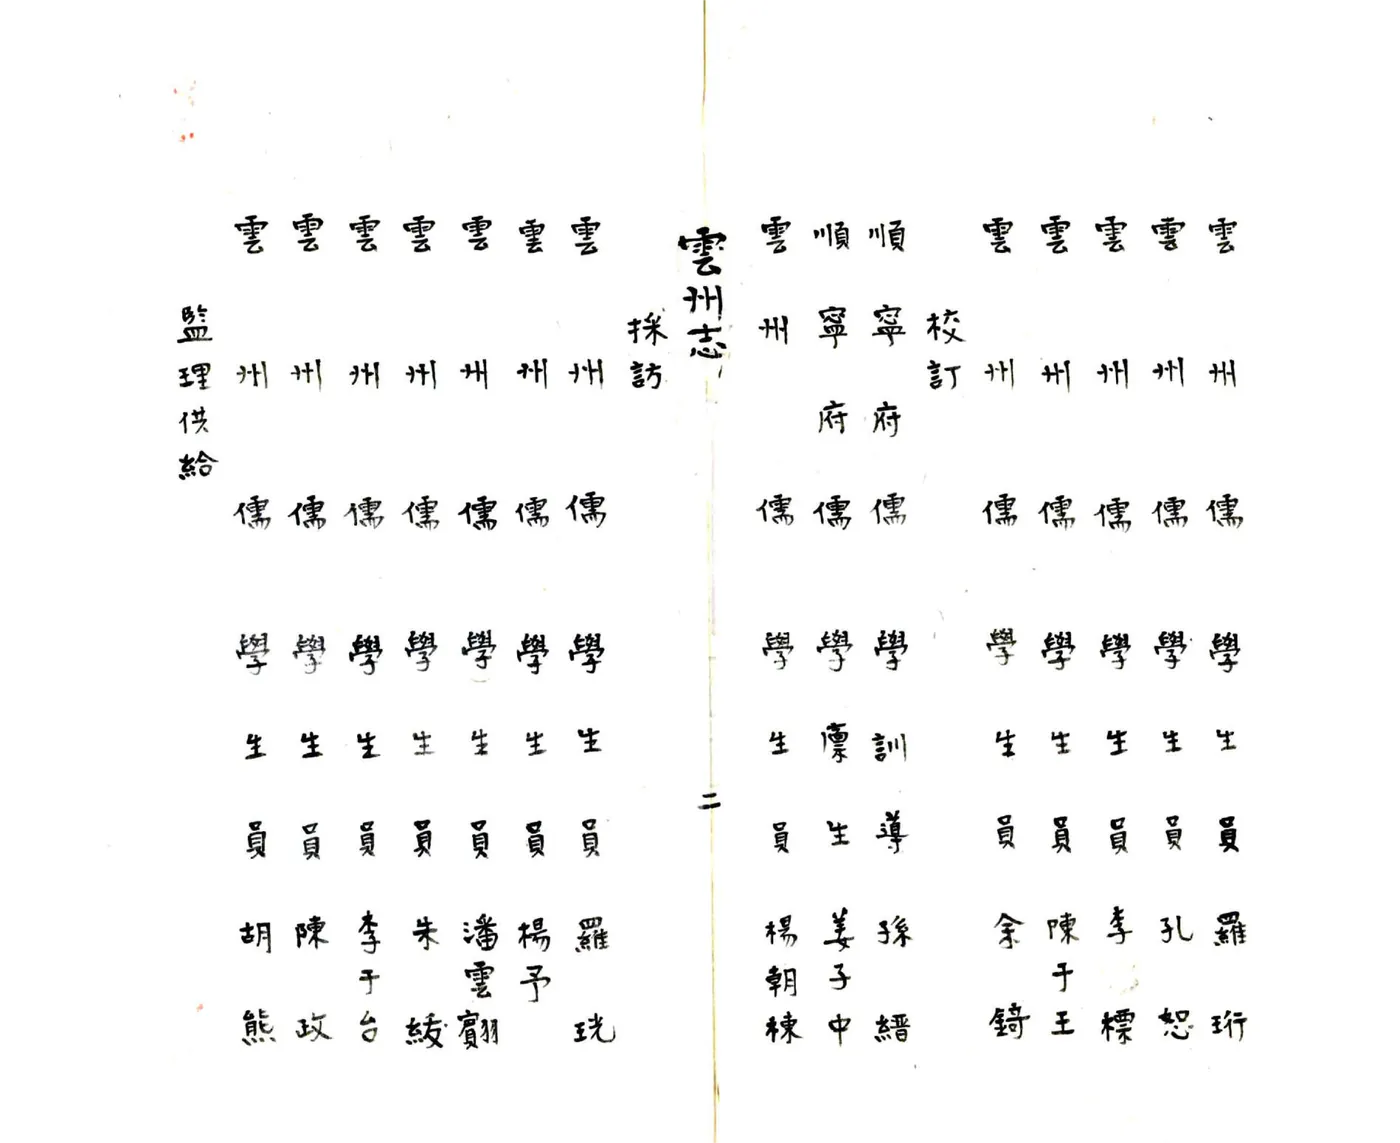 雲州儒學生員羅珩
雲州儒學生員孔恕
雲州儒學生員李標
雲州儒學生員陳于王
雲州儒學生員余錡
校訂
順寧府儒學訓導孫縉
順寧府儒學廩生姜子中
雲州儒學生員楊朝棟
雲州志
二
採訪
雲州儒學生員羅珖
雲州儒學生員楊予
雲州儒學生員潘雲
雲州儒學生員朱綬
雲州儒學生員李于台
雲州儒學生員陳政
雲州儒學生員胡熊
監理供給